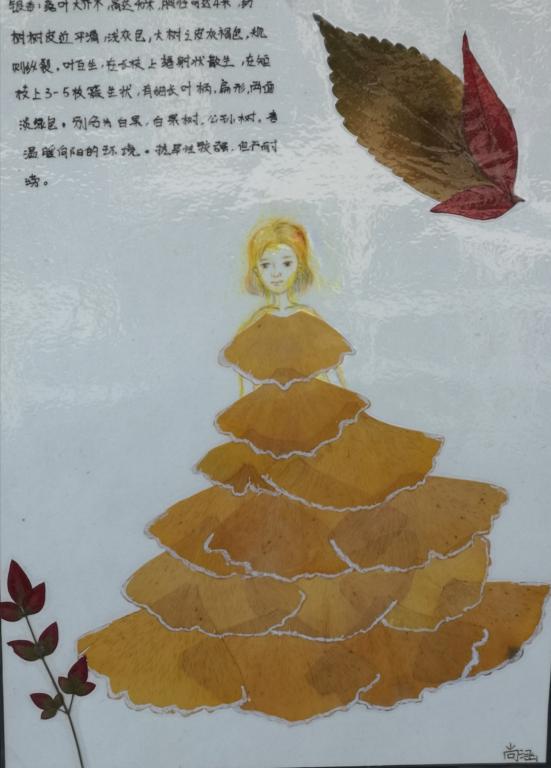 银杏：落叶大乔木，高达40米，胸径可达4米，幼
树树皮近平滑，浅灰色，大树之皮灰褐色，规
则纵裂，叶互生，在长枝上辐射状散生，在短
枝上3-5枚簇生状，有细长叶柄，扇形，两面
淡绿色。别名为白果，白果树，公孙树，喜
温暖向阳的环境。抗旱性较强，但不耐
涝。
尚涵